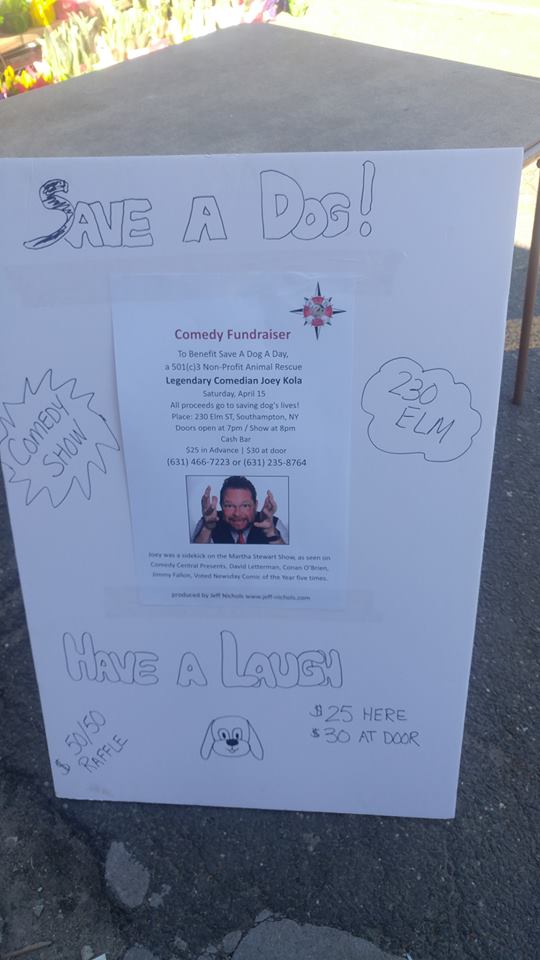 SAVE A DOG!
Comedy Fundraiser
To Benefit Save A Dog A Day,
a 501(c)3 Non-Profit Animal Rescue
Legendary Comedian Joey Kola
Saturday, April 15
All proceeds go to saving dog's lives!
Place: 230 Elm ST, Southampton, NY
Doors open at 7pm / Show at 8pm
Cash Bar
$25 in Advance | $30 at door
(631) 466-7223 or (631) 235-8764
COMEDY
SHOW
230
ELM
Joey was a sidekick on the Martha Stewart Show, as seen on
Comedy Central Presents, David Letterman, Conan O'Brien,
Jimmy Fallon, Voted Newsday Comic of the Year five times.
produced by Jeff Nichols www.jeff-nichols.com
HAVE A LAUGH
$ 50/50
RAFFLE
$25 HERE
$30 AT DOOR